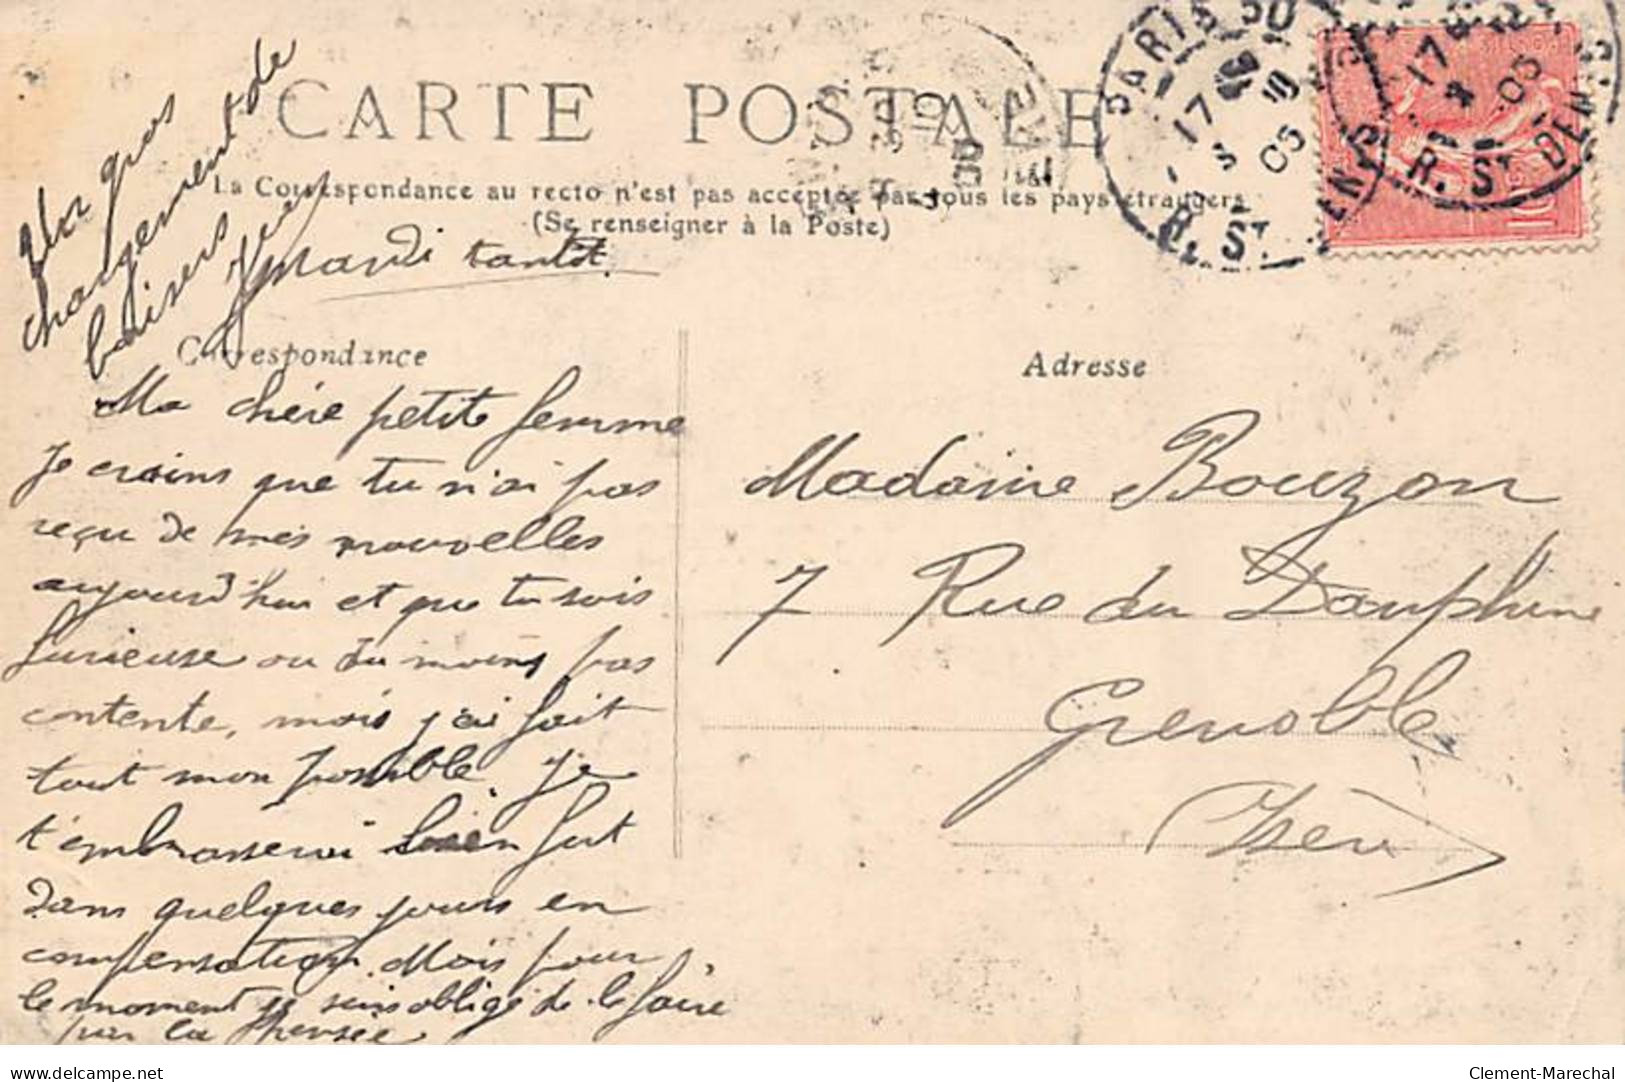 CARTE POSTALE
La Correspondance au recto n'est pas acceptée par tous les pays étrangers
(Se renseigner à la Poste)
PARIS
17
05
R. St DENIS
17
05
R. St DENIS
10
gros
chargement de
baisers
mardi tantôt
Correspondance
Ma chére petite femme
Je crains que tu n'ai pas
reçu de mes nouvelles
aujourd'hui et que tu sois
furieuse ou du moins pas
contente, mais j'ai fait
tout mon possible. Je
t'embrasserai bien fort
dans quelques jours en
compensation. Mais pour
le moment je suis obligé de le faire
par la pensée
Adresse
Madame Bouzon
7 Rue du Dauphiné
Grenoble
Isère
delcampe.net
Clement-Marechal